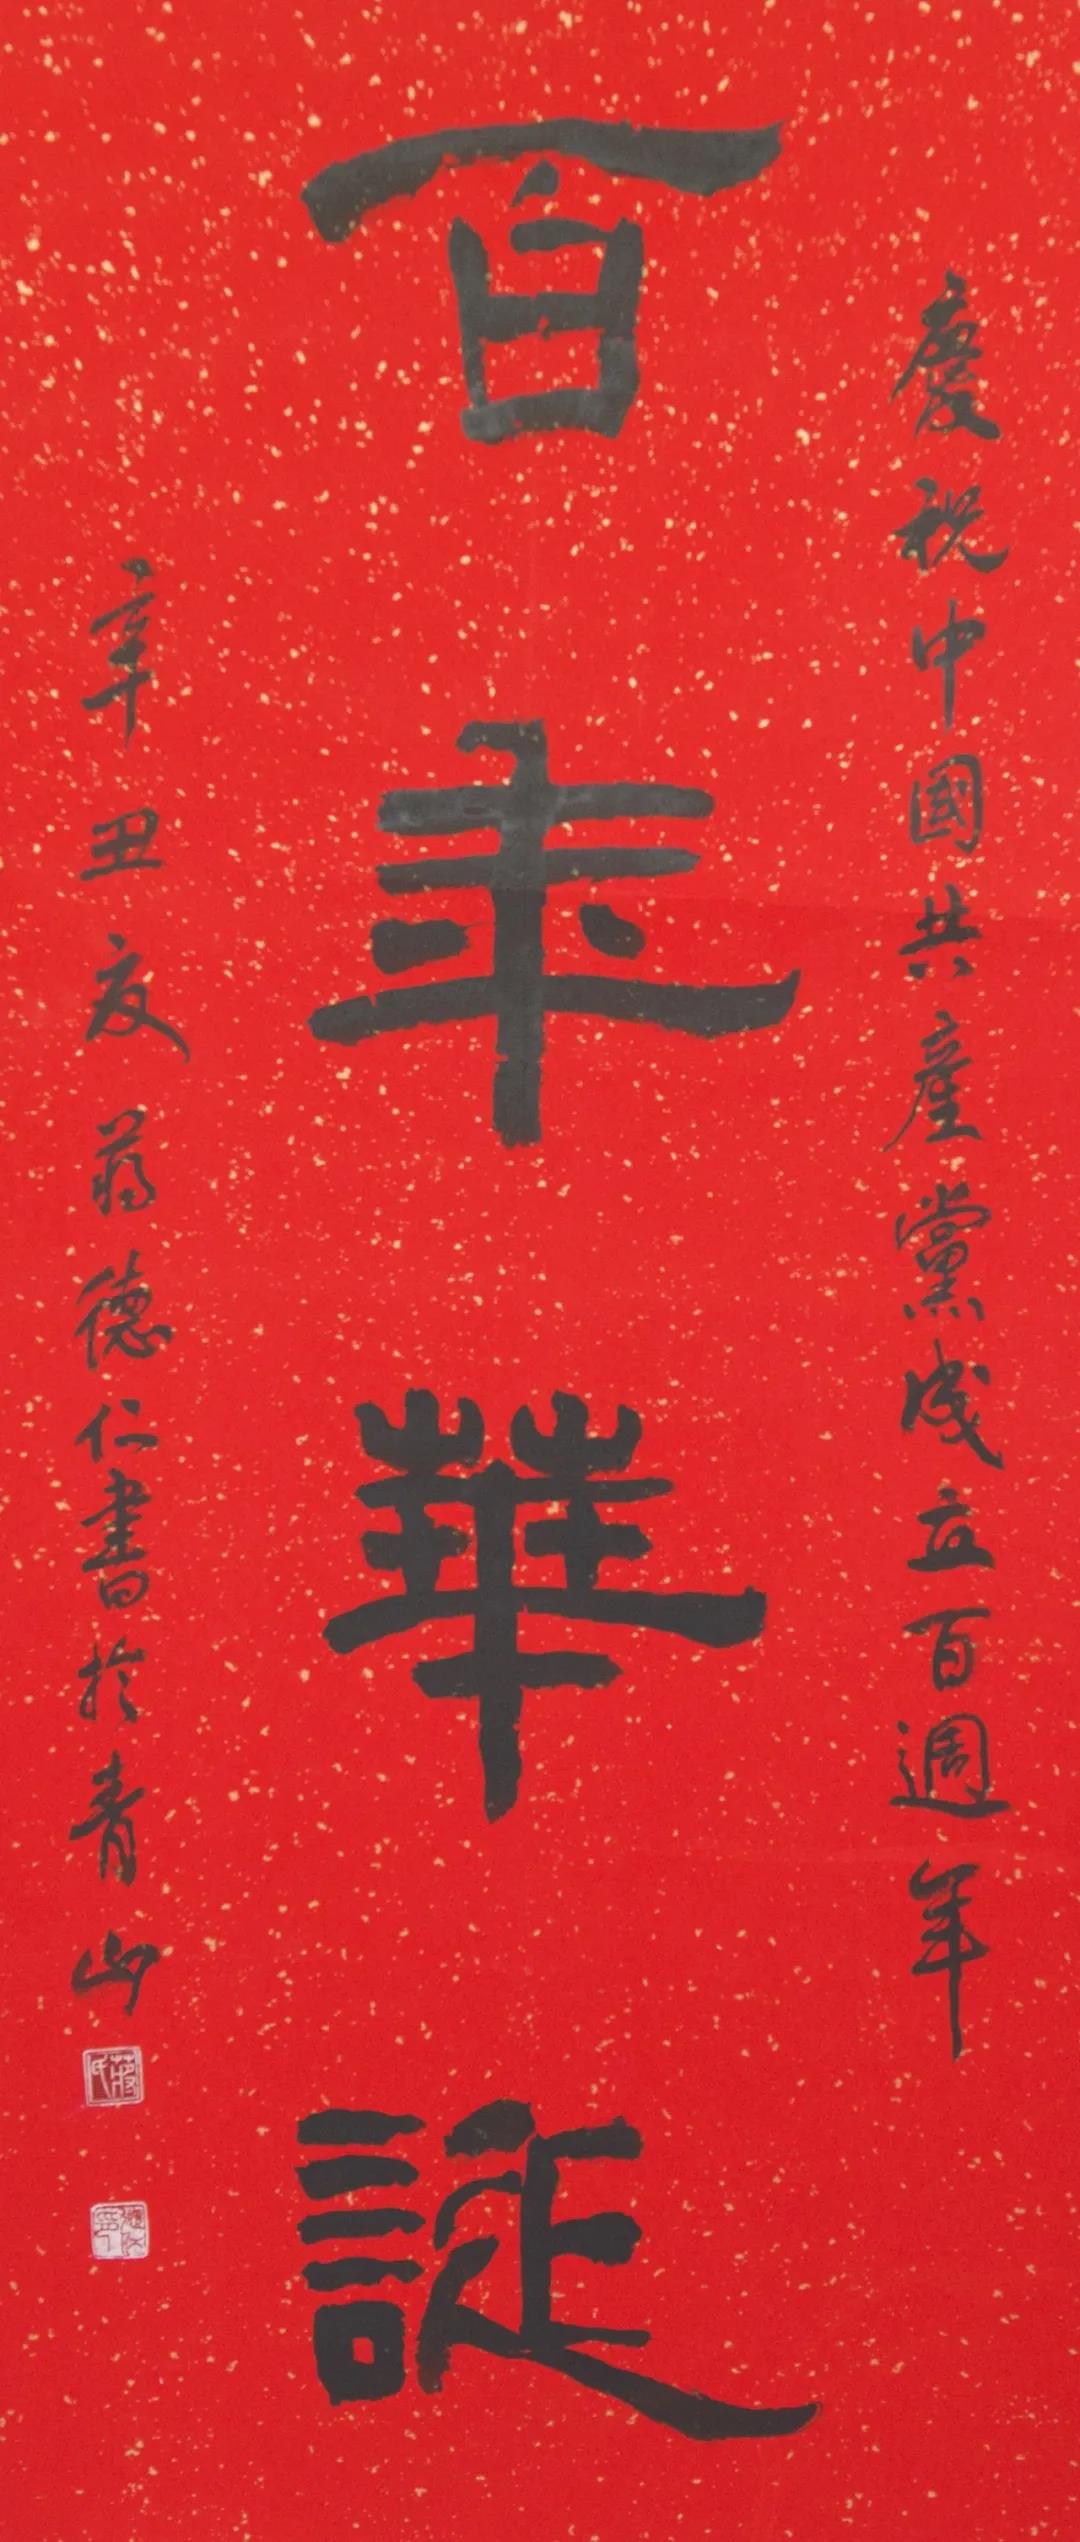 慶祝中國共産黨成立百週年
百年華誕
辛丑夏蔣德仁書於青山
蔣氏